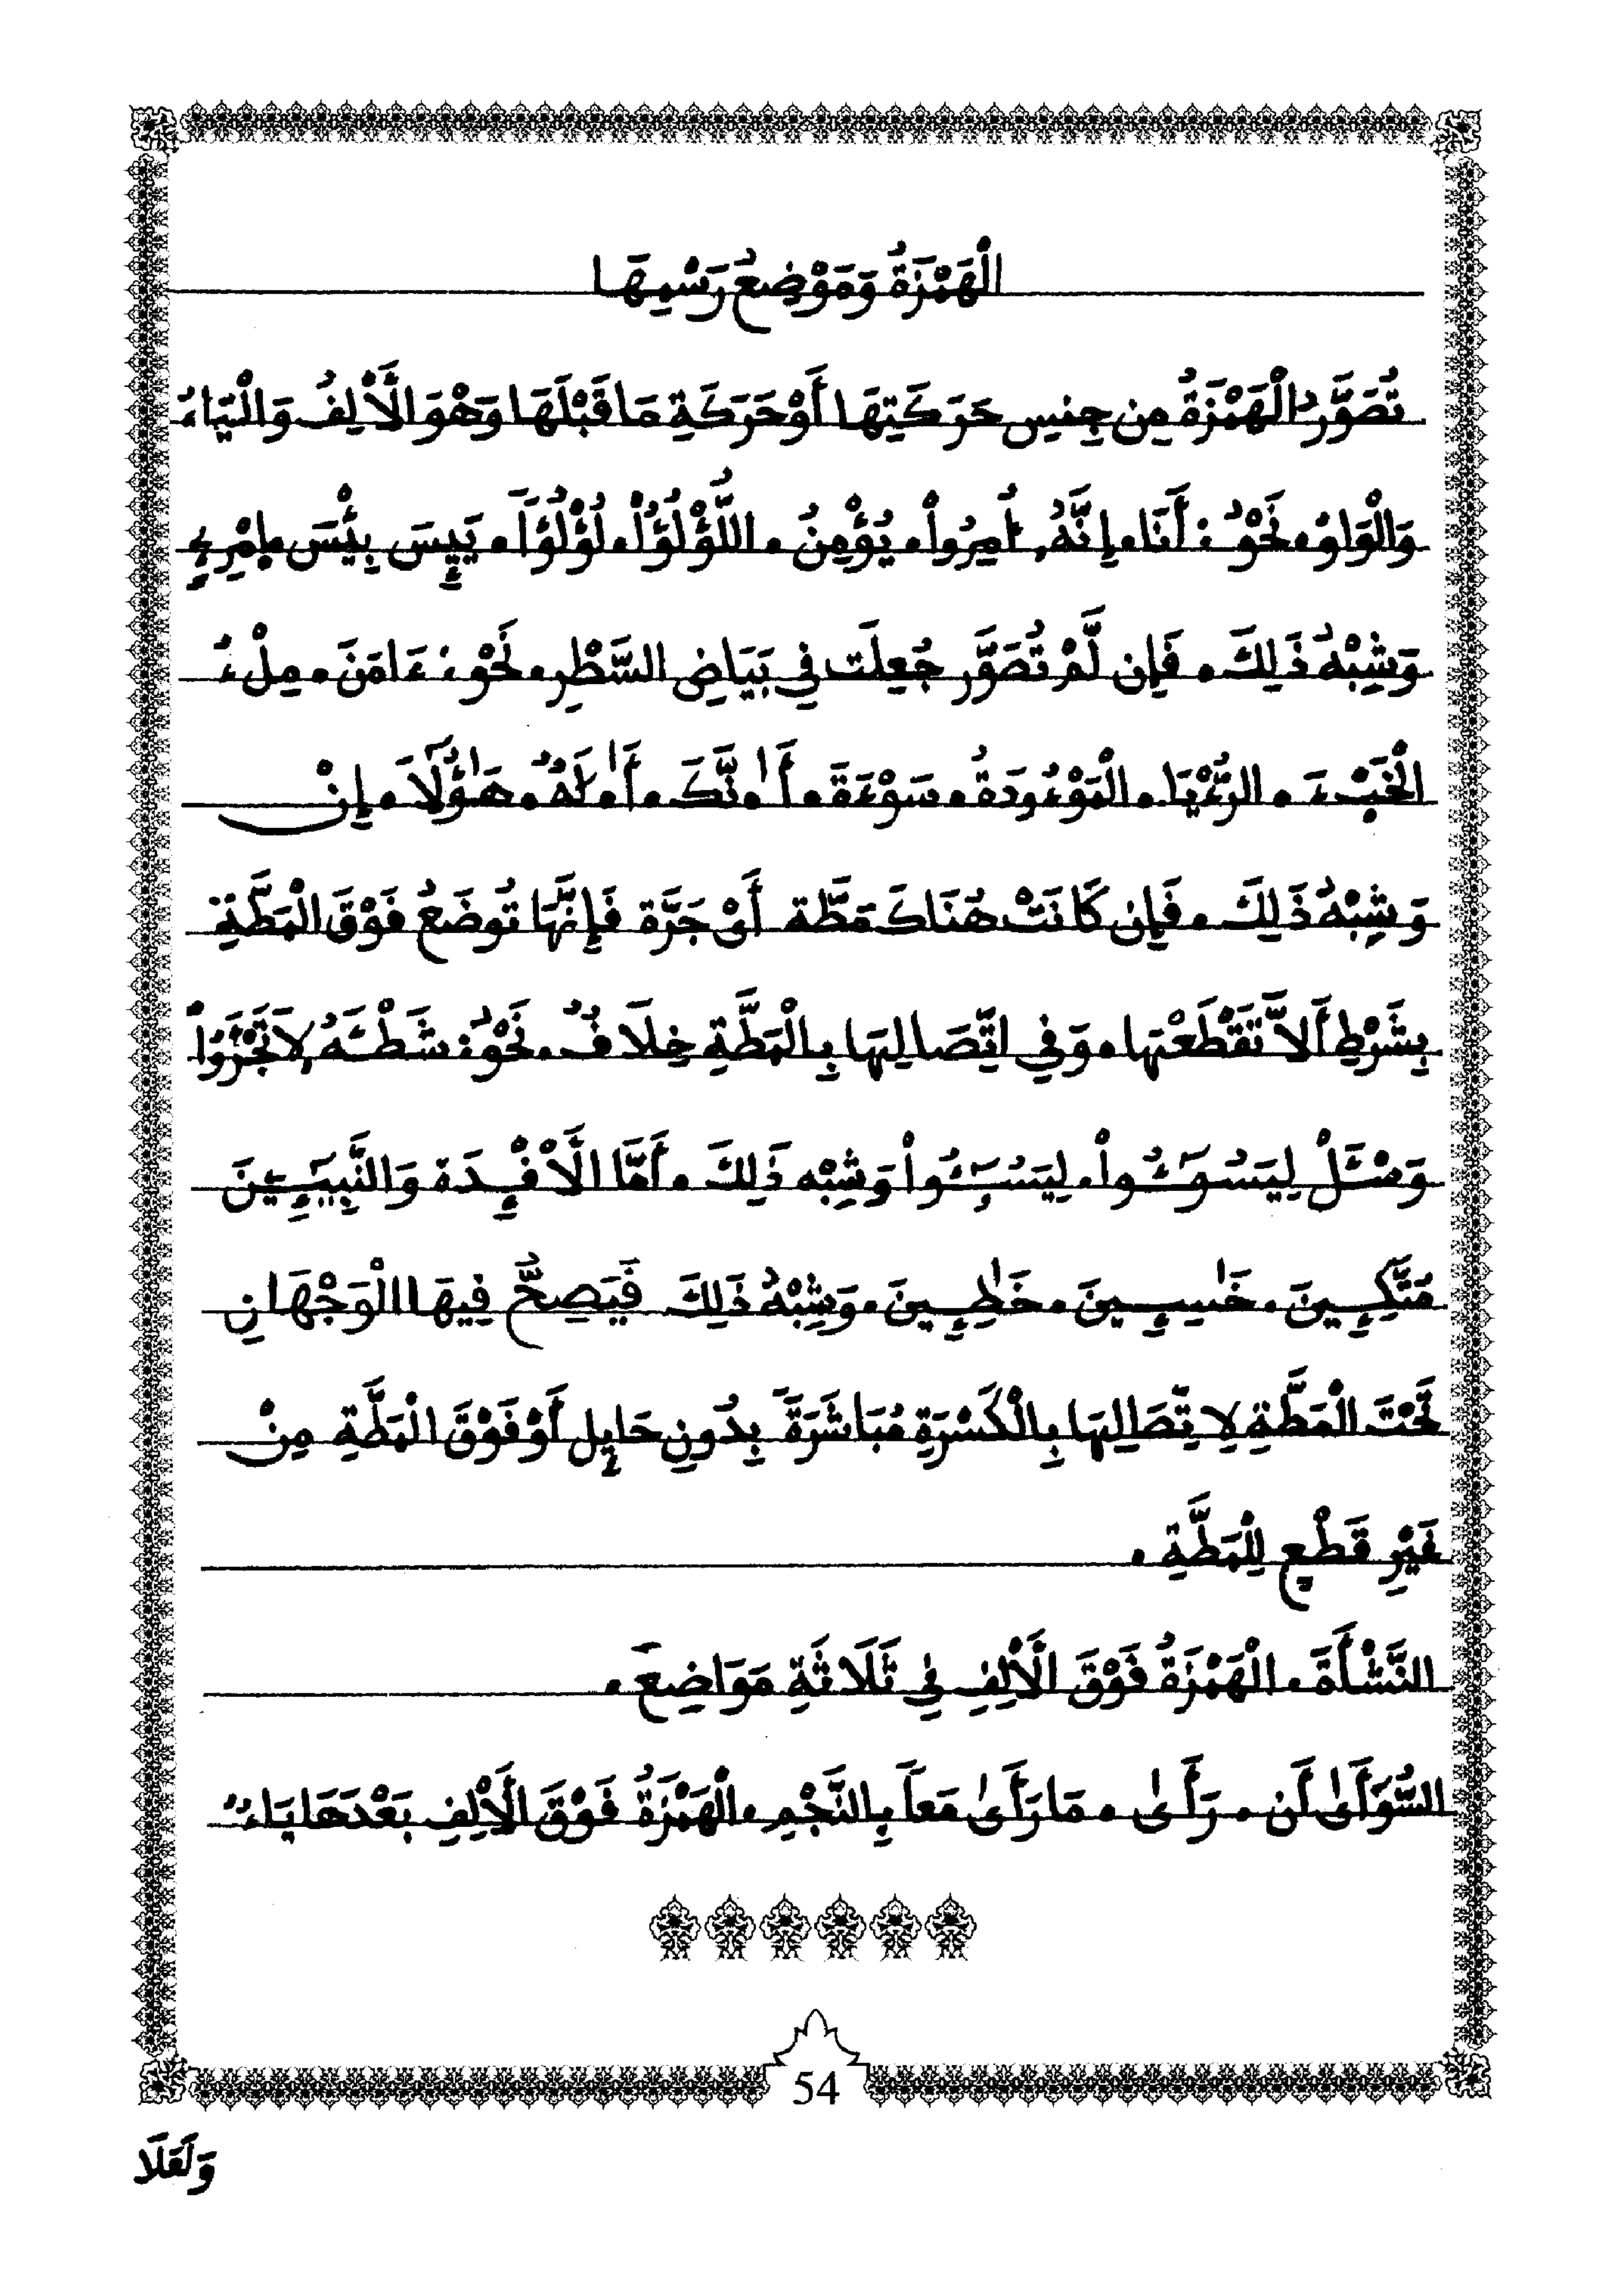 الْهَمْزَةُ وَمَوْضِعُ رَسْمِهَا
تُصَوَّرُ الْهَمْزَةُ مِن جِنسِ حَرَكَتِهَا أَوْ حَرَكَةِ مَا قَبْلَهَا وَهْوَ الأَلِفُ وَالْيَاءُ
وَالْوَاوُ، نَحْوُ : أَنَا، إِنَّهُ، أُمِرُواْ، يُؤْمِنُ، اللُّؤْلُؤُاْ، لُؤْلُؤاً، يَيِٕسَ بِئْسَ، إِمْرِءٍ
وَشِبْهُ ذَلِكَ، فَإِن لَّمْ تُصَوَّر جُعِلَت فِي بَيَاضِ السَّطْرِ، نَحْوُ : ءَامَنَ، مِلْءُ
الْخَبْءَ، الرُّءْيَا، الْمَوْءُودَةُ، سَوْءَةَ، أَ.نَّكَ، أَ.لَهٌ، هَٰؤُلَآ، إِنْ
وَشِبْهُ ذَلِكَ، فَإِن كَانَتْ هُنَاكَ مَطَّة أَيْ جَرَّة فَإِنَّهَا تُوضَعُ فَوْقَ الْمَطَّةِ
بِشَرْطِ أَلاَّ تَقْطَعْهَا، وَفِي اتِّصَالِهَا بِالْمَطَّةِ خِلَافٌ، نَحْوُ : شَطْـَٔهُ، لاَ تَجْـَٔرُواْ
وَسْـَٔلْ لِيَسُـࣳـُٔواْ، لِيَسُـࣳـُٔواْ وَشِبْه ذَلِكَ، أَمَّا الأَفْـِٕدَة وَالنَّبِيـِٕينَ
مُتَّكِـِٕينَ، خَٰسِـِٕينَ، خَٰطِـِٕينَ، وَشِبْهُ ذَلِكَ فَيَصِحُّ فِيهَا الْوَجْهَانِ
تَحْتَ الْمَطَّةِ لِاتِّصَالِهَا بِالْكَسْرَةِ مُبَاشَرَةً بِدُونِ حَايِٕل أَوْ فَوْقَ الْمَطَّةِ مِنْ
غَيْرِ قَطْعٍ لِلْمَطَّةِ .
النَّشْأَةَ، الْهَمْزَةُ فَوْقَ الْأَلِفِ فِي ثَلَاثَةِ مَوَاضِعَ .
السُّوأَىٰ أَن، رَأَىٰ، مَا رَأَىٰ مَعاً بِالنَّجْمِ، الْهَمْزَةُ فَوْقَ الْأَلِفِ بَعْدَهَا يَاءٌ
54